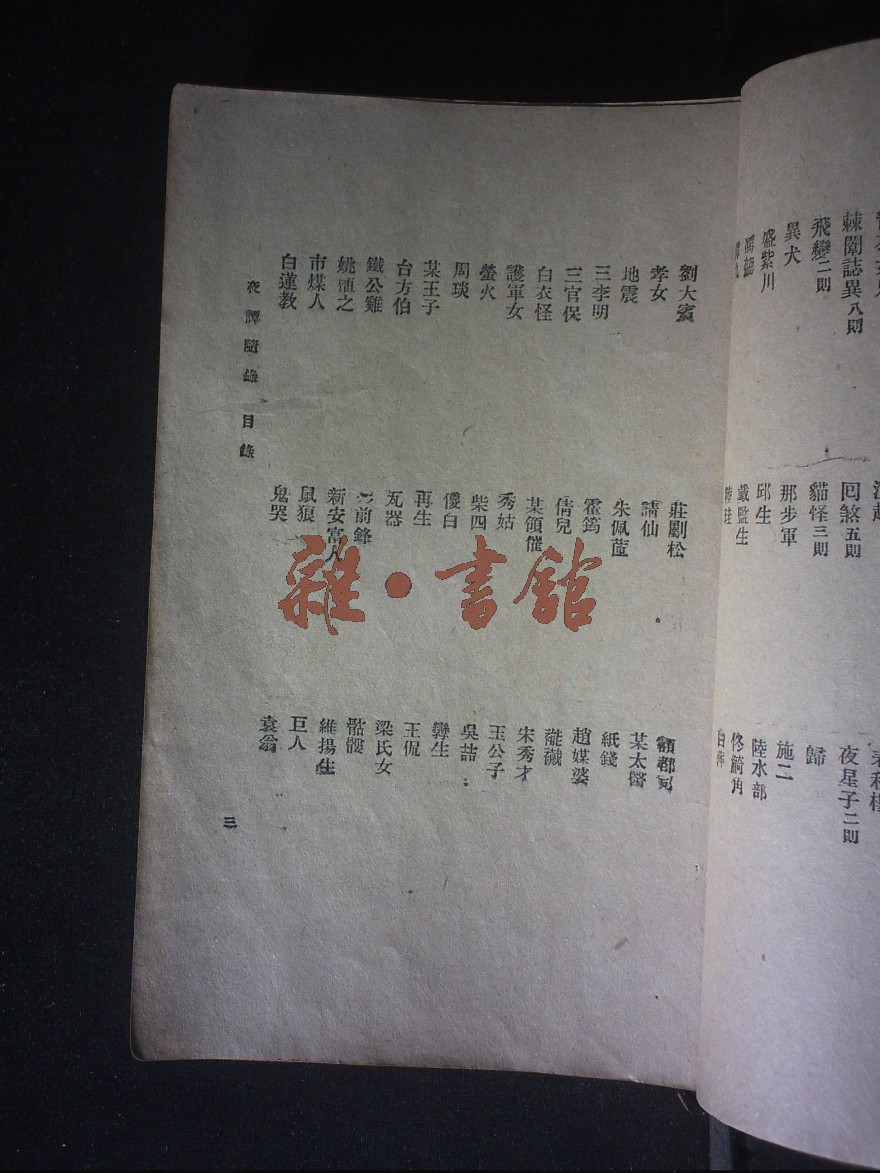 棘闈誌異八則
飛變二則
異犬
盛紫川
回煞五則
貓怪三則
那步軍
邱生
戴監生
夜星子二則
歸
施二
陸水部
佟觭角
劉大賓
孝女
地震
三李明
三官保
白衣怪
護軍女
螢火
周琰
某王子
台方伯
鐵公雞
姚慎之
市煤人
白蓮教
莊斸松
請仙
朱佩茝
霍筠
倩兒
某領催
秀姑
柴四
儍白
再生
瓦器
前鋒
新安富人
鼠狼
鬼哭
額都司
某太醫
紙錢
趙媒婆
蘢蘵
宋秀才
玉公子
吳喆
孿生
王侃
梁氏女
骷髏
維揚生
巨人
袁翁
夜譚隨錄 目錄
三
雜·書館